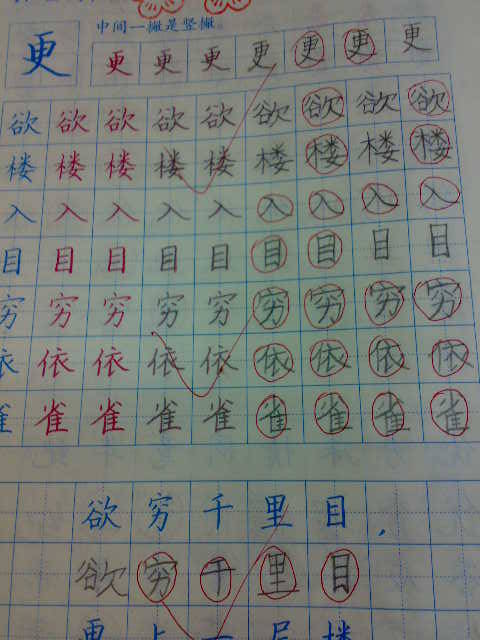 中间一撇是竖撇。
更 更 更 更 更 更 更 更
欲 欲 欲 欲 欲 欲 欲 欲 欲
楼 楼 楼 楼 楼 楼 楼 楼 楼
入 入 入 入 入 入 入 入 入
目 目 目 目 目 目 目 目 目
穷 穷 穷 穷 穷 穷 穷 穷 穷
依 依 依 依 依 依 依 依 依
雀 雀 雀 雀 雀 雀 雀 雀 雀
欲 穷 千 里 目 ，
欲 穷 千 里 目
更 上 一 层 楼